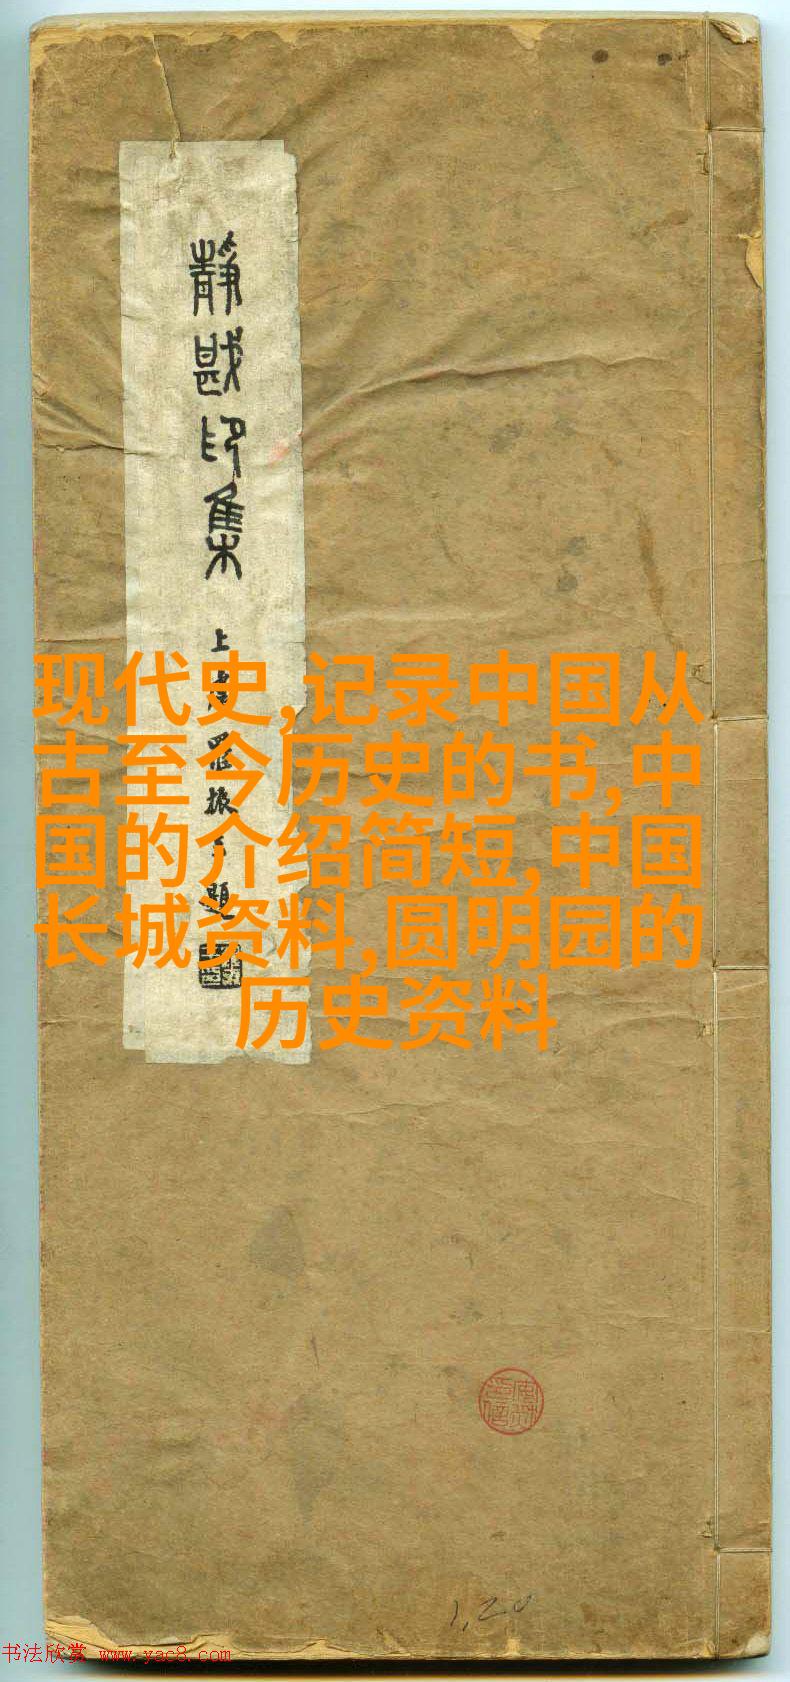 靜戡印集
上虞羅振玉題
现代史,记录中国从
古至今历史的书,中
国的介绍简短,中国
长城资料,圆明园的
历史资料
1,20
书法欣赏 www.yac8.com